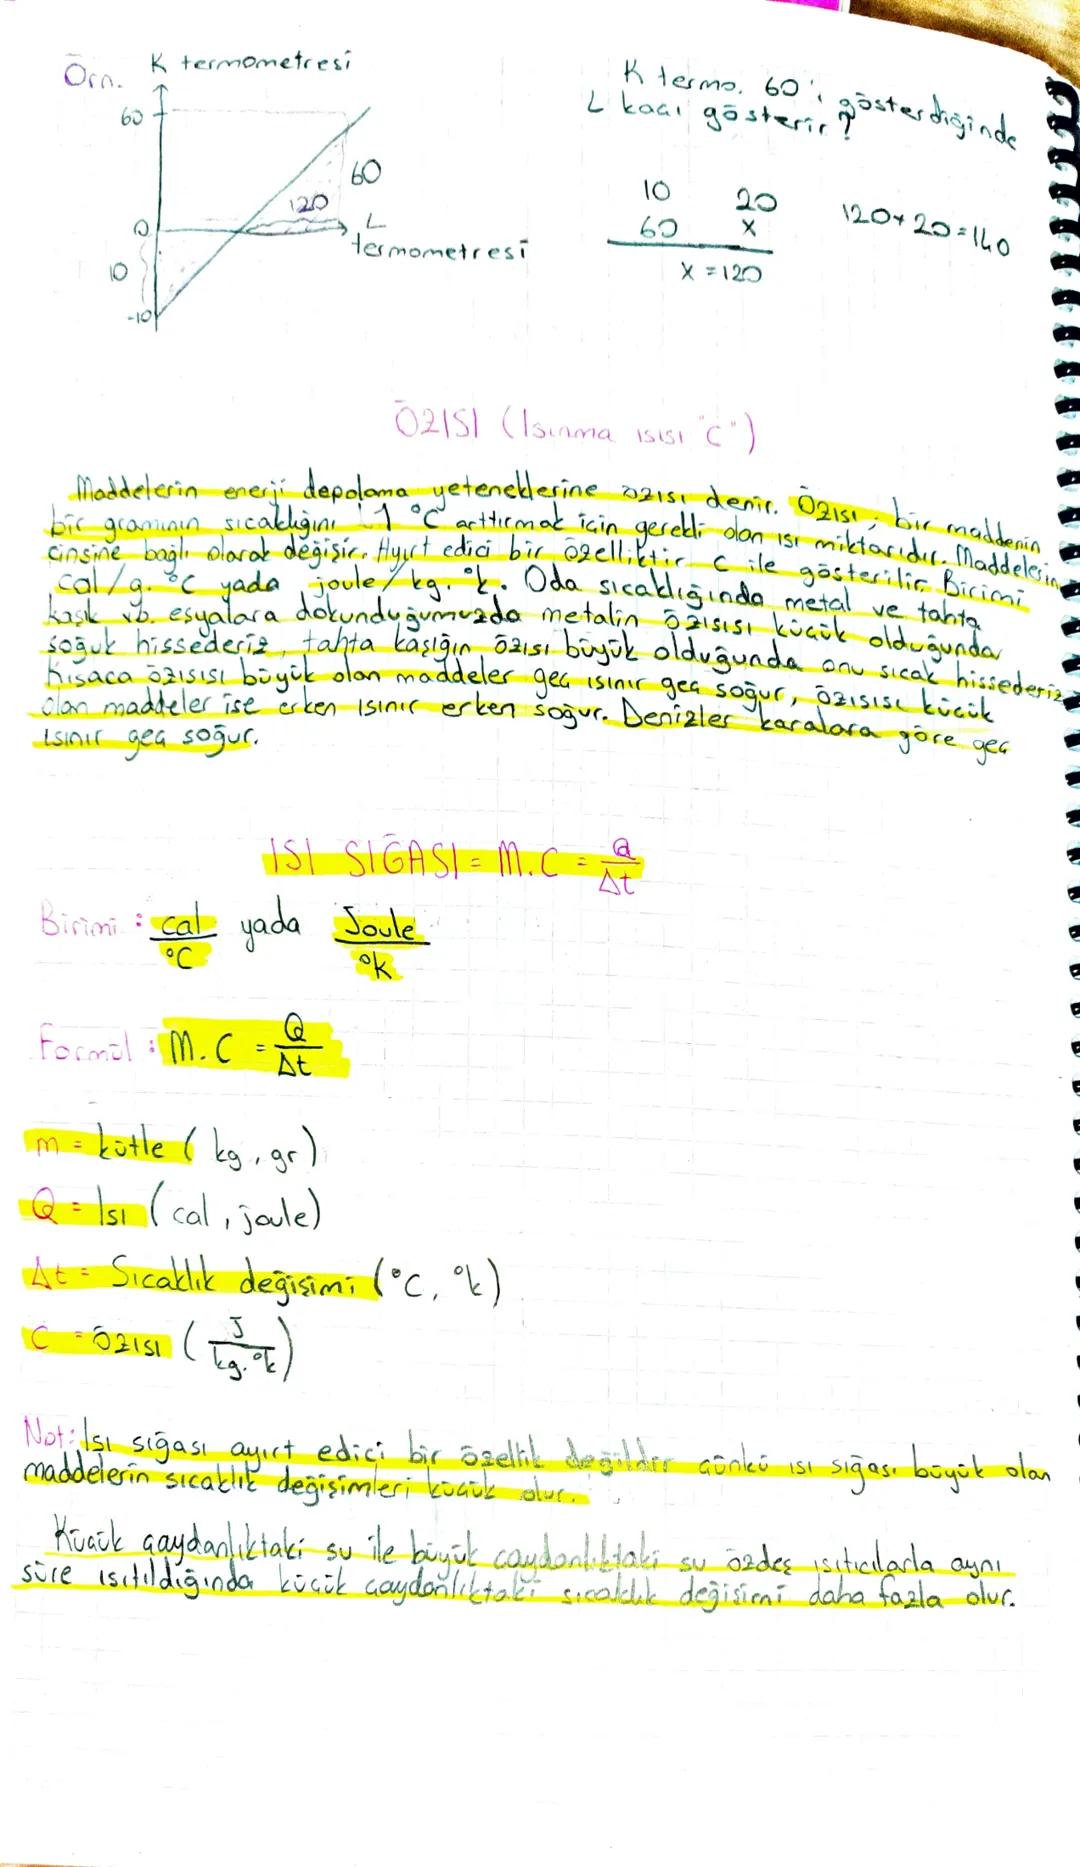 Örn. K termometresi
60
0
10
-10
120
60
L
termometresi
K termo. 60'ı gösterdiğinde
L kaçı gösterir?
10 20
60 x
x = 120
120+20=140
ÖZISI (Isınma ısısı "c")
Maddelerin enerji depolama yeteneklerine özısı denir. Özısı, bir maddenin
bir gramının sıcaklığını 1 °C arttırmak için gerekli olan ısı miktarıdır. Maddelerin
cinsine bağlı olarak değişir. Ayırt edici bir özelliktir c ile gösterilir. Birimi
cal/g.°C yada joule/kg.°k. Oda sıcaklığında metal ve tahta
kaşık vb. eşyalara dokunduğumuzda metalin özısısı küçük olduğunda
soğuk hissederiz, tahta kaşığın özısı büyük olduğunda onu sıcak hissederiz
Kısaca özısısı büyük olan maddeler geç ısınır geç soğur, özısısı küçük
olan maddeler ise erken ısınır erken soğur. Denizler karalara göre geç
ısınır geç soğur.
ISI SIĞASI = M.C = Q/Δt
Birimi: cal/°C yada Joule/°K
Formül: M.C = Q/Δt
m = kütle (kg, gr)
Q = Isı (cal, joule)
Δt = Sıcaklık değişimi (°C, °k)
C = özısı (J/kg.°k)
Not: Isı sığası ayırt edici bir özellik değildir çünkü ısı sığası büyük olan
maddelerin sıcaklık değişimleri küçük olur.
Küçük çaydanlıktaki su ile büyük çaydanlıktaki su özdeş ısıtıcılarla aynı
süre ısıtıldığında küçük çaydanlıktaki sıcaklık değişimi daha fazla olur.